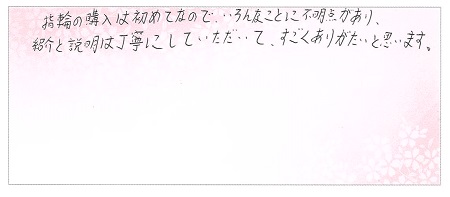 指輪の購入は初めてなので、いろんなことに不明点があり、
紹介と説明は丁寧にしていただいて、すごくありがたいと思います。